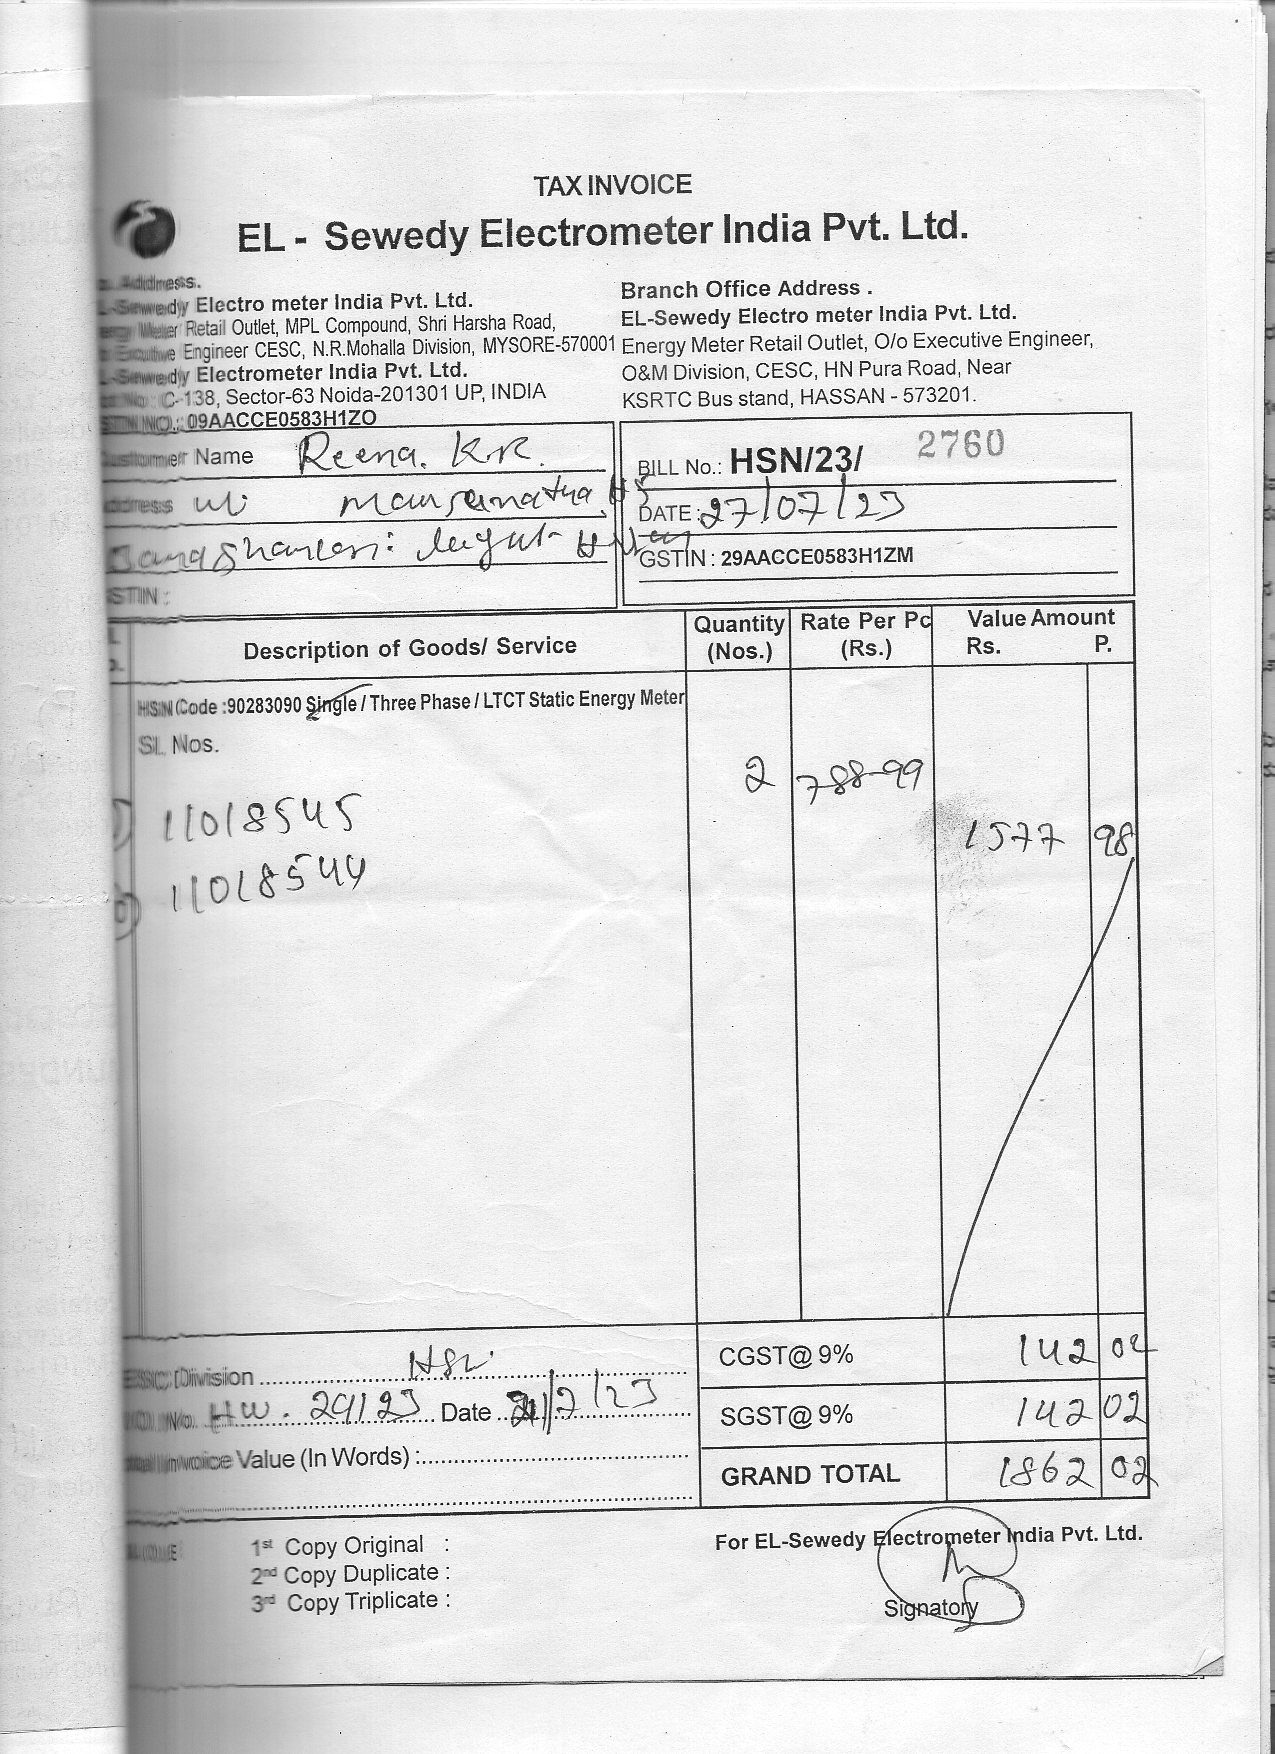 TAX INVOICE
EL - Sewedy Electrometer India Pvt. Ltd.
Address.
Sewedy Electro meter India Pvt. Ltd.
Meter Retail Outlet, MPL Compound, Shri Harsha Road,
Executive Engineer CESC, N.R.Mohalla Division, MYSORE-570001
Sewedy Electrometer India Pvt. Ltd.
C-138, Sector-63 Noida-201301 UP, INDIA
09AACCE0583H1ZO
Branch Office Address .
EL-Sewedy Electro meter India Pvt. Ltd.
Energy Meter Retail Outlet, O/o Executive Engineer,
O&M Division, CESC, HN Pura Road, Near
KSRTC Bus stand, HASSAN - 573201.
Customer Name Reena. K.R.
BILL No.: HSN/23/ 2760
DATE : 27/07/23
GSTIN : 29AACCE0583H1ZM
GSTIN :
Description of Goods/ Service
Quantity (Nos.)
Rate Per Pc (Rs.)
Value Amount
Rs. P.
HSN Code :90283090 Single / Three Phase / LTCT Static Energy Meter
SL. Nos.
2 788-99
1577 98
11018545
11018544
Division
CGST@ 9% 142 02
No. HW. 29/23 Date
SGST@ 9% 142 02
Invoice Value (In Words) :
GRAND TOTAL 1862 02
1st Copy Original :
2nd Copy Duplicate :
3rd Copy Triplicate :
For EL-Sewedy Electrometer India Pvt. Ltd.
Signatory